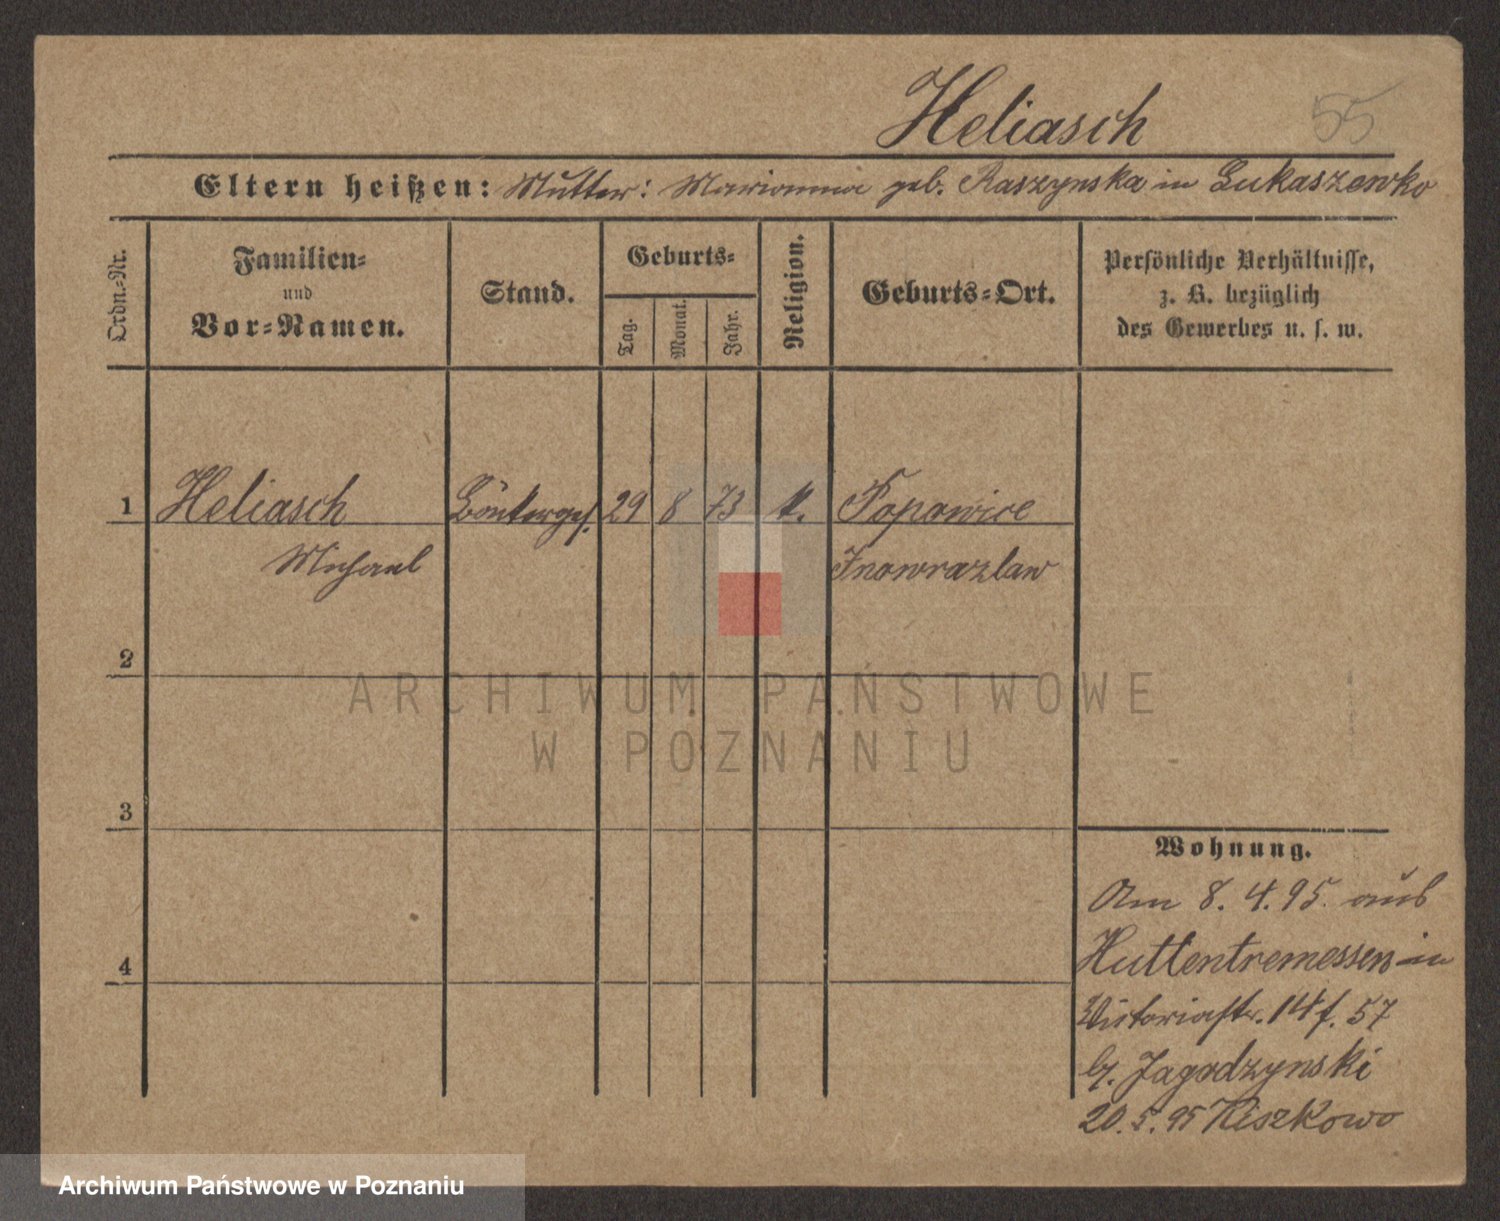 Heliasch 55
Eltern heißen: Mutter: Marianna geb. Raszynska in Lukaszewko
Ordn.-Nr.
Familien-
und
Vor-Namen.
Stand.
Geburts-
Tag.
Monat.
Jahr.
Religion.
Geburts-Ort.
Persönliche Verhältnisse,
z. B. bezüglich
des Gewerbes u. s. w.
1 Heliasch Böttcherges. 29 8 73 k. Popowice
Michael Inowrazlaw
2
3
4
Wohnung.
Am 8. 4. 95. aus
Huttentremessen in
Victoriastr. 14 f. 57
b/. Jagodzynski
20. 5. 95 Kiszkowo
ARCHIWUM PAŃSTWOWE
W POZNANIU
Archiwum Państwowe w Poznaniu